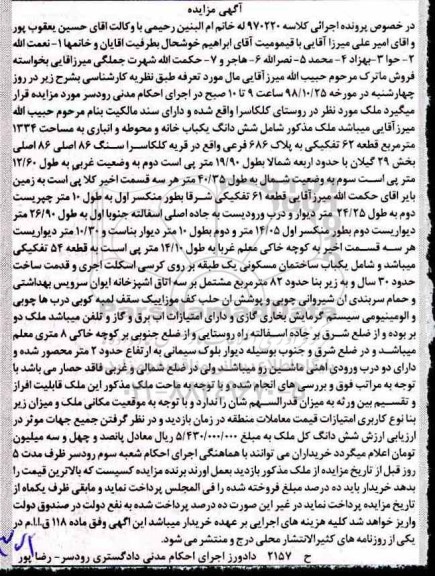 آگهی مزایده
در خصوص پرونده اجرائی کلاسه ۹۷۰۲۲۰ له خانم ام البنین رحیمی با وکالت اقای حسین یعقوب پور
و اقای امیر علی میرزا آقایی با قیمومیت آقای ابراهیم خوشحال بطرفیت اقایان و خانمها ۱- نعمت الله
۲- حوا ۳-بهزاد ۴- محمد ۵- نصرالله ۶- هاجر و ۷- حکمت الله شهرت جملگی میرزاقایی بخواسته
فروش ماترک مرحوم حبیب الله میرزا آقایی مال مورد تعرفه طبق نظریه کارشناسی بشرح زیر در روز
چهارشنبه در مورخه ۹۸/۱۰/۲۵ ساعت ۹ تا ۱۰ صبح در اجرای احکام مدنی رودسر مورد مزایده قرار
میگیرد ملک مورد نظر در روستای کلکاسرا واقع شده و دارای سند مالکیت بنام مرحوم حبیب الله
میرزآقایی میباشد ملک مذکور شامل شش دانگ یکباب خانه و محوطه و انباری به مساحت ۱۳۳۴
مترمربع قطعه ۶۲ تفکیکی به پلاک ۶۸۶ فرعی واقع در قریه کلکاسرا سنگ ۸۶ اصلی ۸۶ اصلی
بخش ۲۹ گیلان با حدود اربعه شمالا بطول ۱۹/۹۰ متر پی است دوم به وضعیت غربی به طول ۱۲/۶۰
متر پی است سوم به وضعیت شمال به طول ۴۰/۳۵ متر هر سه قسمت اخیر کلا پی است به زمین
بایر اقای حکمت الله میرزآقایی قطعه ۶۱ تفکیکی شرقا بطور منکسر اول به طول ۱۰ متر چپریست
دوم به طول ۲۴/۲۵ متر دیوار و درب ورودیست به جاده اصلی اسفالته جنوبا اول به طول ۲۶/۹۰ متر
دیواریست دوم بطور منکسر اول ۱۴/۰۵ متر و دوم بطول ۱۰ متر دیوار بناست و ۱۰/۳۰ دیواریست
هر سه قسمت اخیر به کوچه خاکی معلم غربا به طول ۱۴/۱۰ متر پی است به قطعه ۵۴ تفکیکی
میباشد و شامل یکباب ساختمان مسکونی یک طبقه بر روی کرسی اسکلت اجری و قدمت ساخت
حدود ۳۰ سال و به زیر بنا حدود ۸۲ مترمربع مشتمل بر سه اتاق اشپزخانه ایوان سرویس بهداشتی
و حمام سربندی ان شیروانی چوبی و پوشش ان حلب کف موزاییک سقف لمبه کوبی درب ها چوبی
و الومینیومی سیستم گرمایش بخاری گازی و دارای امتیازات اب برق و گاز و تلفن میباشد ملک دو
بر بوده و از ضلع شرق بر جاده اسفالته راه روستایی و از ضلع جنوبی بر کوچه خاکی ۸ متری معلم
میباشد و در ضلع شرق و جنوب بوسیله دیوار بلوک سیمانی به ارتفاع حدود ۲ متر محصور شده و
دارای دو درب ورودی اهنی ماشین رو میباشند ولی در ضلع شمالی و غربی فاقد حصار می باشد با
توجه به مراتب فوق و بررسی های انجام شده و با توجه به ماحت ملک مذکور این ملک قابلیت افراز
و تقسیم بین ورثه به میزان قدرالسهم شان را ندارد و با توجه به موقعیت مکانی ملک و میزان زیر
بنا نوع کاربری امتیازات قیمت معاملات منطقه در زمان بازدید و در نظر گرفتن جمیع جهات موثر در
ارزیابی ارزش شش دانگ کل ملک به مبلغ ۵/۴۳۰/۰۰۰/۰۰۰ ریال معادل پانصد و چهل و سه میلیون
تومان اعلام میگردد خریداران می توانند با هماهنگی اجرای احکام شعبه سوم رودسر ظرف مدت ۵
روز قبل از تاریخ مزایده از ملک مذکور بازدید بعمل اورند برنده مزایده کسیست که بالاترین قیمت را
بدهد خریدار باید ده درصد مبلغ فروخته شده را فی المجلس پرداخت نماید و مابقی ظرف یکماه از
تاریخ مزایده پرداخت نماید در غیر این صورت ده درصد پرداخت شده به نفع دولت در صندوق دولت
واریز خواهد شد کلیه هزینه های اجرایی بر عهده خریدار میباشد این اگهی وفق ماده ۱۱۸ ق.ا.م در
یکی از روزنامه های کثیرالانتشار محلی درج و منتشر می شود.
ح ۲۱۵۷ دادورز اجرای احکام مدنی دادگستری رودسر- رضا پور